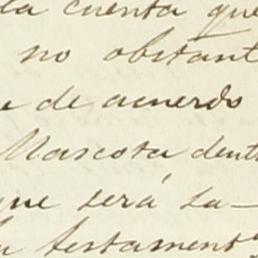 la cuenta que
no obstant
e de acuerdo
Mascota dent
que será sa-
testament